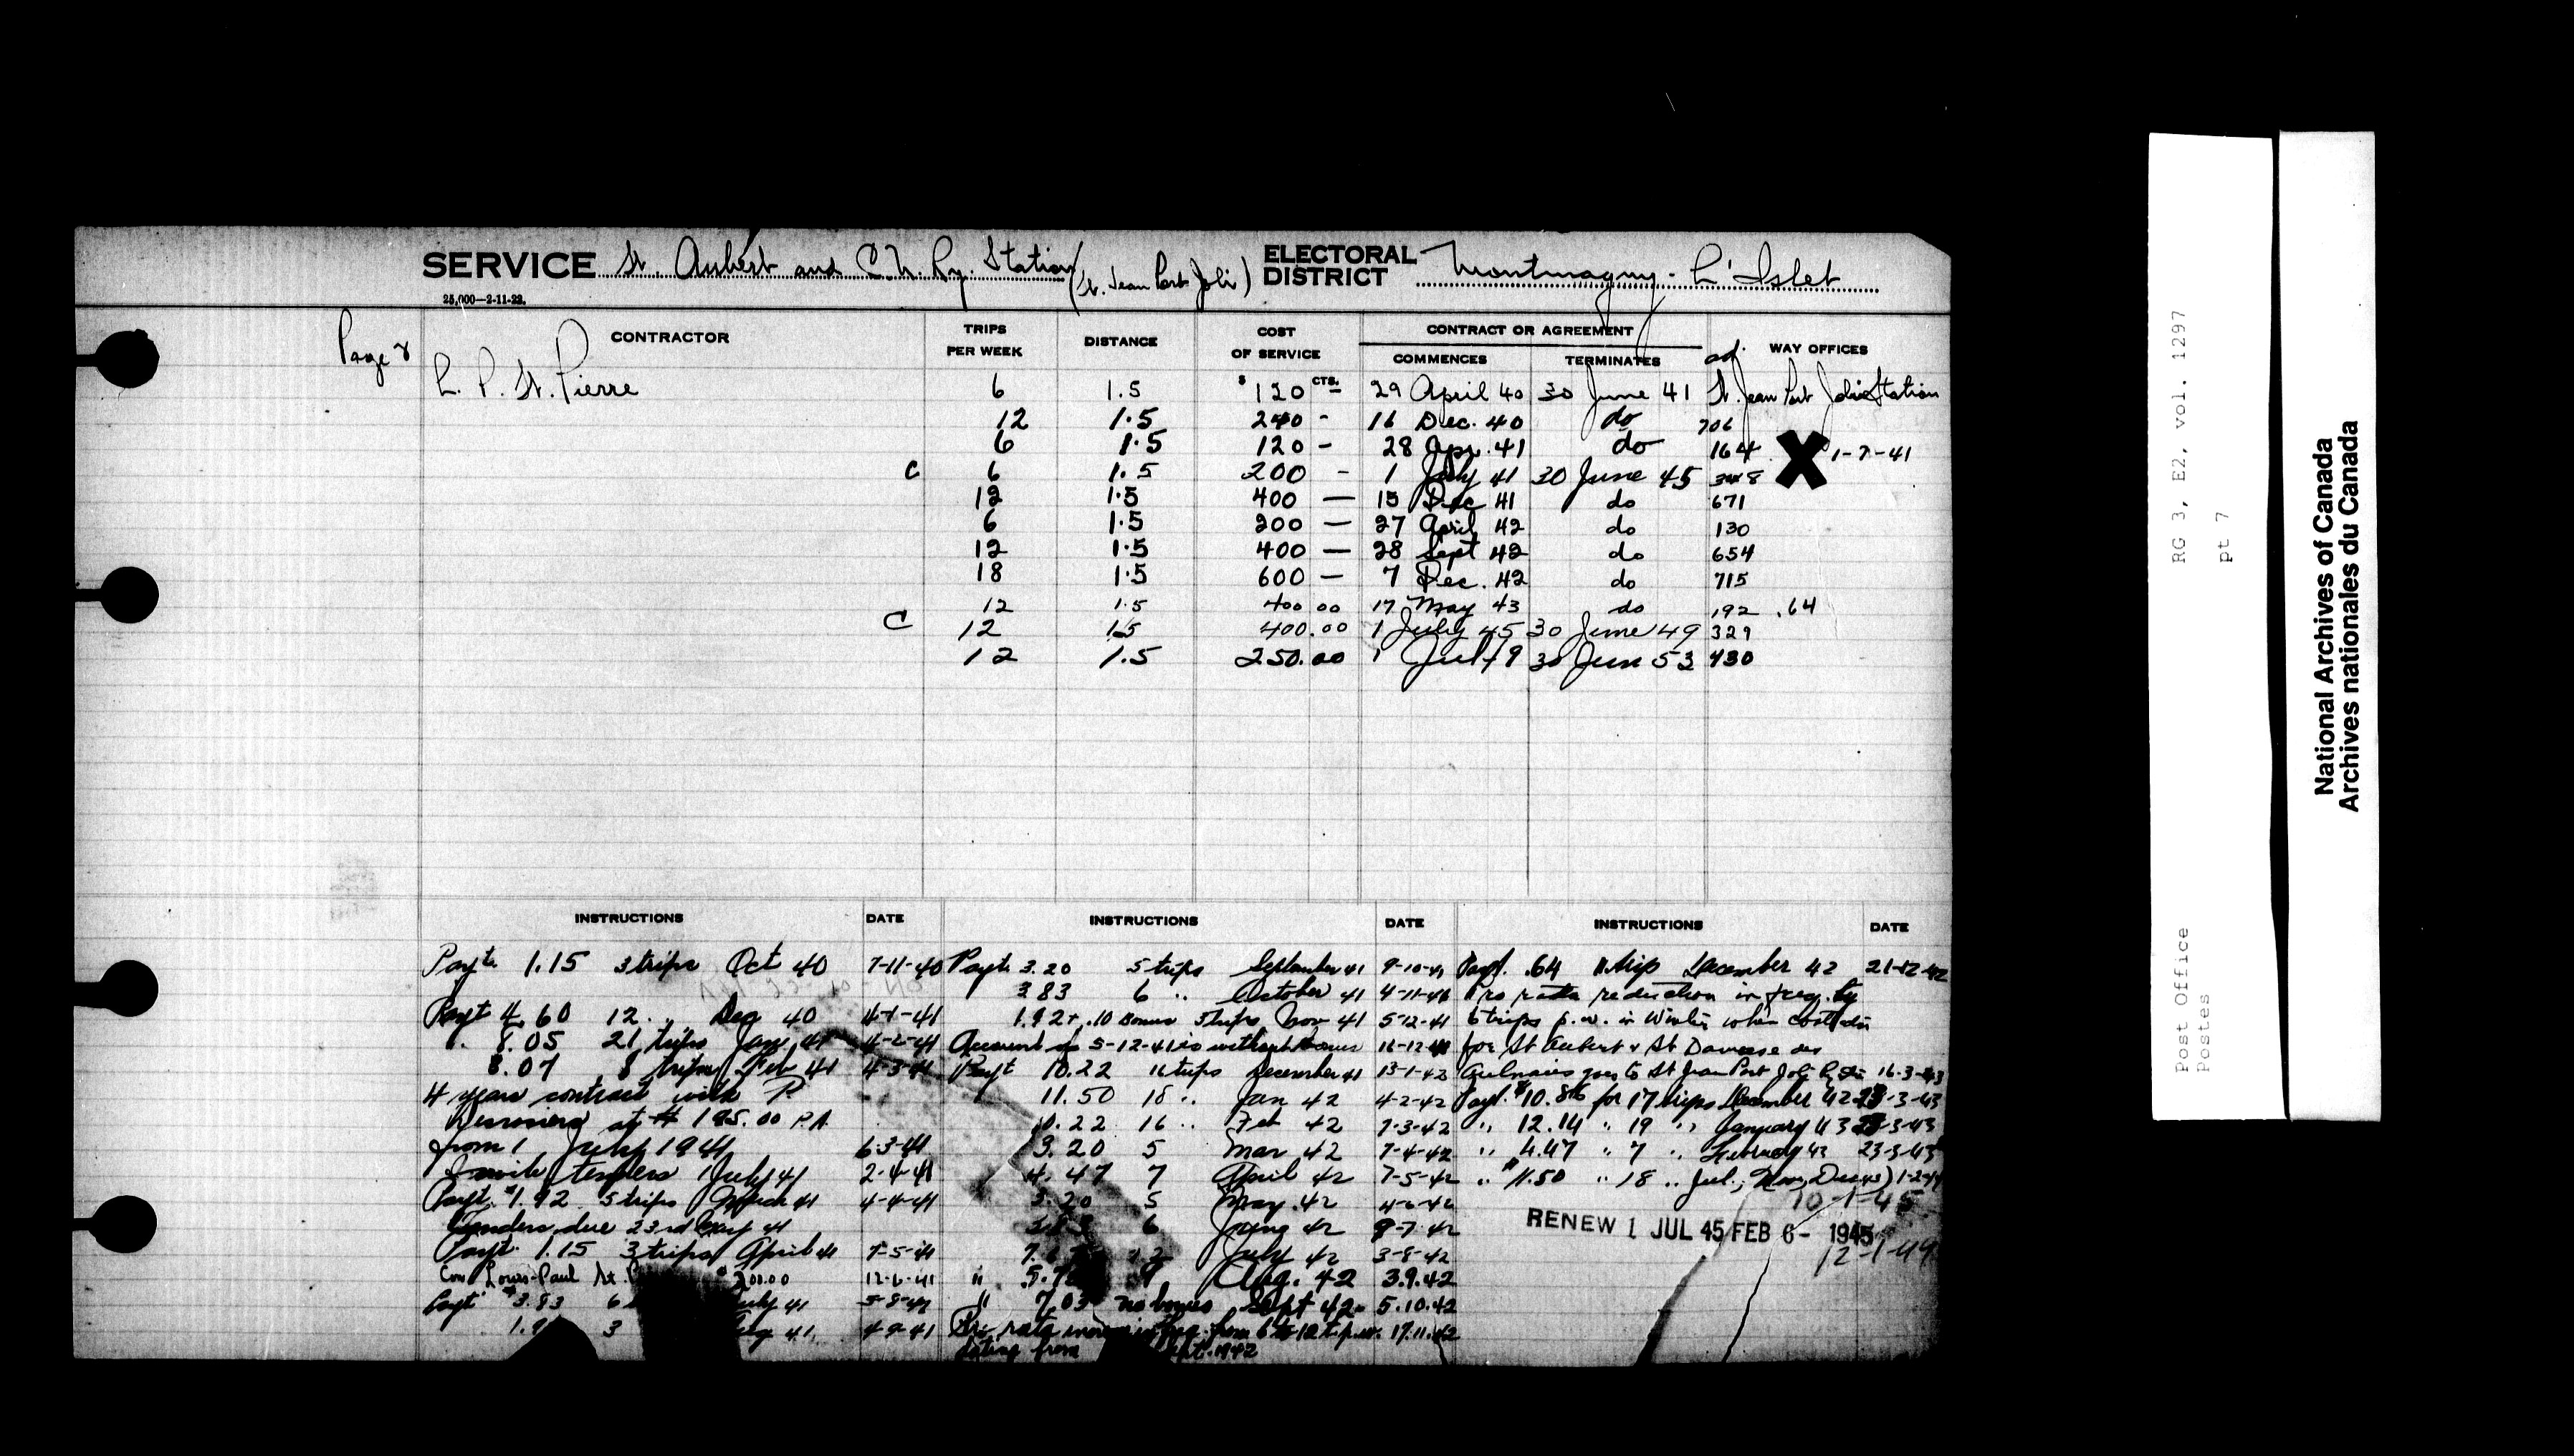 SERVICE St. Aubert and C.N. Ry. Station (St. Jean Port Joli) ELECTORAL DISTRICT Montmagny - L'Islet
25,000—2-11-22.
Page 2
CONTRACTOR TRIPS PER WEEK DISTANCE COST OF SERVICE CONTRACT OR AGREEMENT COMMENCES TERMINATES WAY OFFICES
L. P. St. Pierre 6 1.5 $ 120 CTS. — 29 April 40 30 June 41 ad. St. Jean Port Joli Station
12 1.5 240 - 16 Dec. 40 do 706
6 1.5 120 - 28 Apr. 41 do 164 X 1-7-41
C 6 1.5 200 - 1 July 41 30 June 45 348
12 1.5 400 — 15 Dec 41 do 671
6 1.5 200 — 27 April 42 do 130
12 1.5 400 — 28 Sept 42 do 654
18 1.5 600 — 7 Dec. 42 do 715
12 1.5 400 00 17 May 43 do 192 .64
C 12 1.5 400.00 1 July 45 30 June 49 329
12 1.5 250.00 1 Jul 49 30 Jun 53 430
INSTRUCTIONS DATE
Payt. 1.15 3 trips Oct 40 7-11-40
Payt 4.60 12 .. Dec 40 4-1-41
8.05 21 trips Jan 41 4-2-41
3.07 8 trips Feb 41 4-3-41
4 years contract with P.
Desrosiers at $ 195.00 P.A.
from 1 July 1941 6-3-41
Invite tenders 1 July 41 2-4-41
Payt. $1.92 5 trips March 41 4-4-41
Tenders due 23rd May 41
Payt. 1.15 3 trips April 41 7-5-41
Con. Louis-Paul St. $200.00 12-6-41
Payt $3.83 6 July 41
3 Aug 41 4-9-41
INSTRUCTIONS DATE
Payt. 3.20 5 trips September 41 9-10-41
3.83 6 .. October 41 4-11-41
1.92 + .10 Bonus 3 trips Nov 41 5-12-41
Account on 5-12-41 is without bonus 16-12-41
Payt 10.22 16 trips December 41 13-1-42
11.50 18 .. Jan 42 4-2-42
10.22 16 .. Feb 42 7-3-42
3.20 5 Mar 42 7-4-42
4.47 7 April 42 7-5-42
3.20 5 May 42 4-6-42
3.83 6 June 42 9-7-42
12 July 42 3-8-42
" 9 Aug. 42 3.9.42
" 7.03 no bonus Sept 42 5.10.42
Pro rata increase in freq. from 6 to 12 t.p.w. 17.11.42
dating from Sept. 1942
INSTRUCTIONS DATE
Payt. .64 1 trip December 42 21-12-42
Pro rata reduction in freq. by
6 trips p.w. in Winter when
for St Aubert & St Damase des
Aulnaies goes to St Jean Port Joli 16-3-43
Payt. $10.86 for 17 trips December 42 23-3-43
" 12.14 " 19 " January 43 23-3-43
" 4.47 " 7 " February 43 23-3-43
" $11.50 " 18 .. Jul., Nov., Dec 43) 1-2-44
10-1-45
RENEW 1 JUL 45 FEB 6 - 1945
12-1-49
RG 3, E2, vol. 1297
pt 7
Post Office
Postes
National Archives of Canada
Archives nationales du Canada